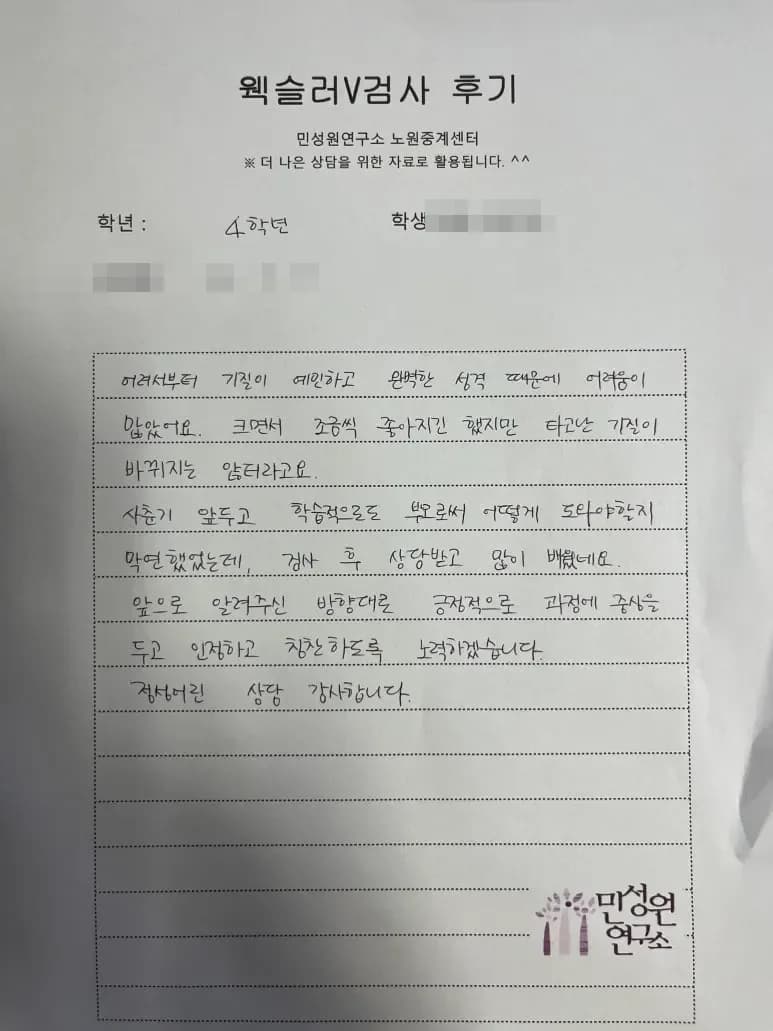 웩슬러V검사 후기
민성원연구소 노원중계센터
※ 더 나은 상담을 위한 자료로 활용됩니다. ^^
학년 : 4학년 학생
어려서부터 기질이 예민하고 완벽한 성격 때문에 어려움이
많았어요. 크면서 조금씩 좋아지긴 했지만 타고난 기질이
바뀌지는 않더라고요.
사춘기 앞두고 학습적으로도 부모로써 어떻게 도와야할지
막연했었는데, 검사 후 상담받고 많이 배웠네요.
앞으로 알려주신 방향대로 긍정적으로 과정에 중심을
두고 인정하고 칭찬하도록 노력하겠습니다.
정성어린 상담 감사합니다.
민성원
연구소